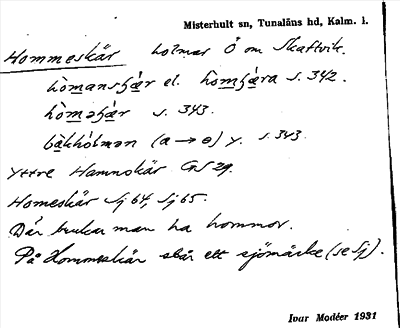 Misterhult sn, Tunaläns hd, Kalm. l.
Hommeskär holmar Ö om Skaftvik.
hòmansʃæ̀r el. hòmʃæ̀ra s. 342.
hòməʃæ̀r s. 343.
bàkhòlmən (a → ɵ) y. s. 343
Yttre Hamnskär GS 29.
Homeskär Sj 64, Sj 65.
Där brukar man ha hommor.
På Hommeskär står ett sjömärke (se Sj).
Ivar Modéer 1931